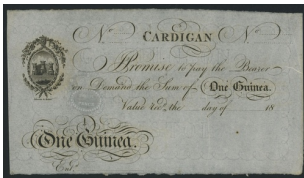 No CARDIGAN No
I Promise to pay the Bearer
on Demand the Sum of One Guinea.
Value Recd. the day of 18
One Guinea.
Ent.